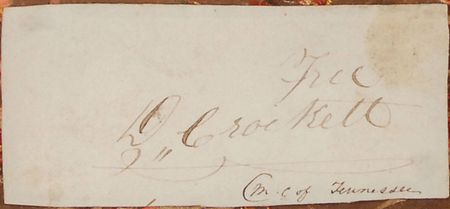 Free
D,, Crockett
(M. C of Tennessee